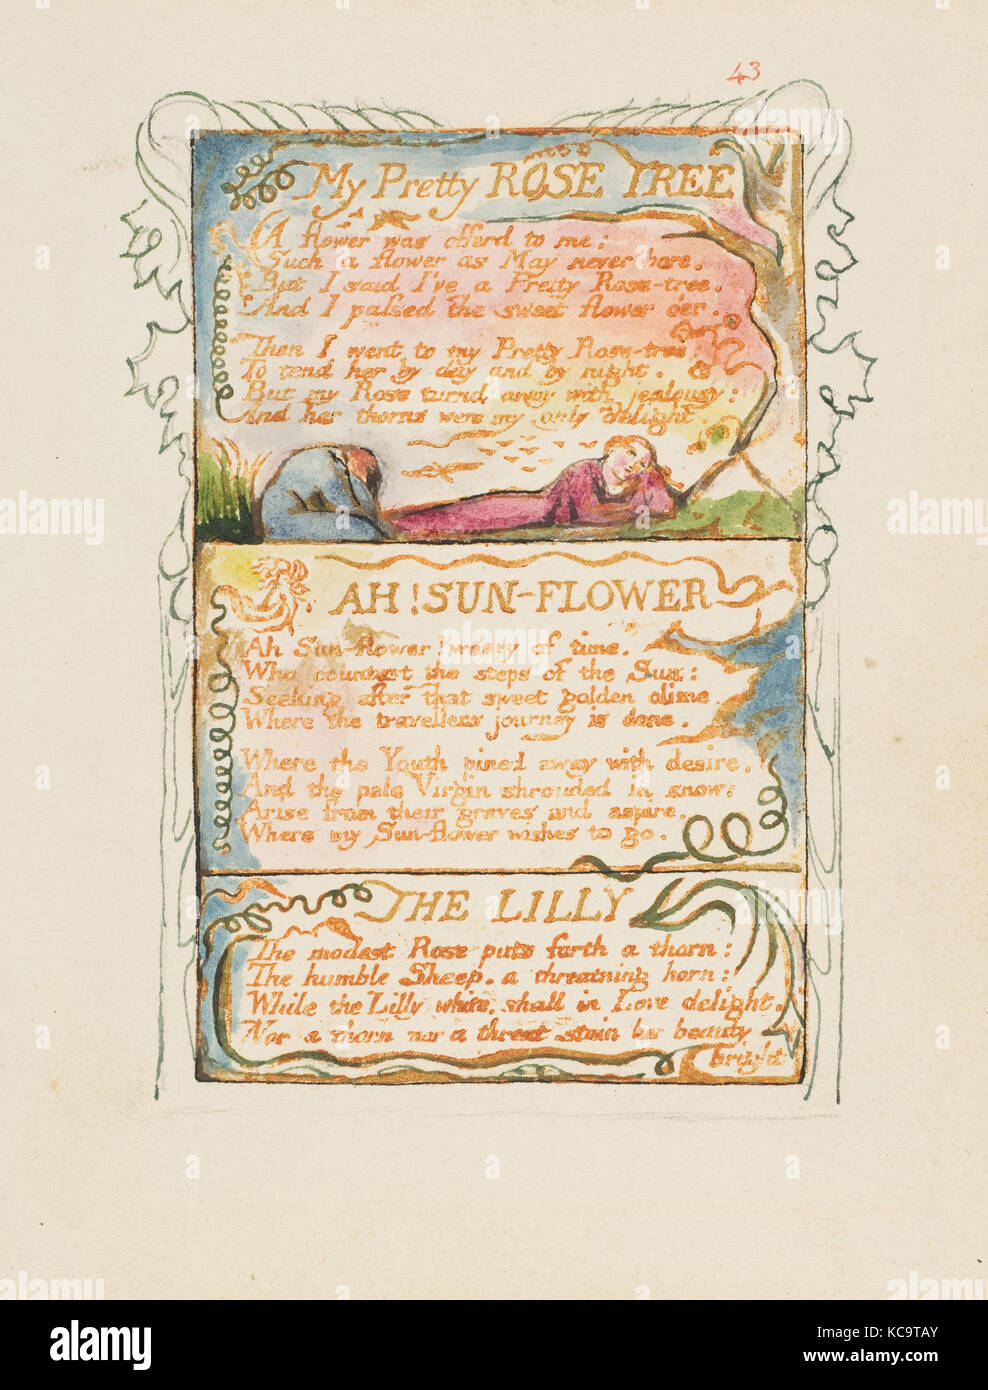 43
My Pretty ROSE TREE
A flower was offerd to me:
Such a flower as May never bore.
But I said I've a Pretty Rose-tree.
And I passed the sweet flower o'er.
Then I went to my Pretty Rose-tree:
To tend her by day and by night.
But my Rose turnd away with jealousy:
And her thorns were my only delight
AH! SUN-FLOWER
Ah Sun-flower! weary of time.
Who countest the steps of the Sun:
Seeking after that sweet golden clime
Where the travellers journey is done.
Where the Youth pined away with desire.
And the pale Virgin shrouded in snow:
Arise from their graves and aspire.
Where my Sun-flower wishes to go.
THE LILLY
The modest Rose puts forth a thorn:
The humble Sheep. a threatning horn:
While the Lilly white, shall in Love delight.
Nor a thorn nor a threat stain her beauty
bright
alamy
Image ID: KC9TAY
www.alamy.com